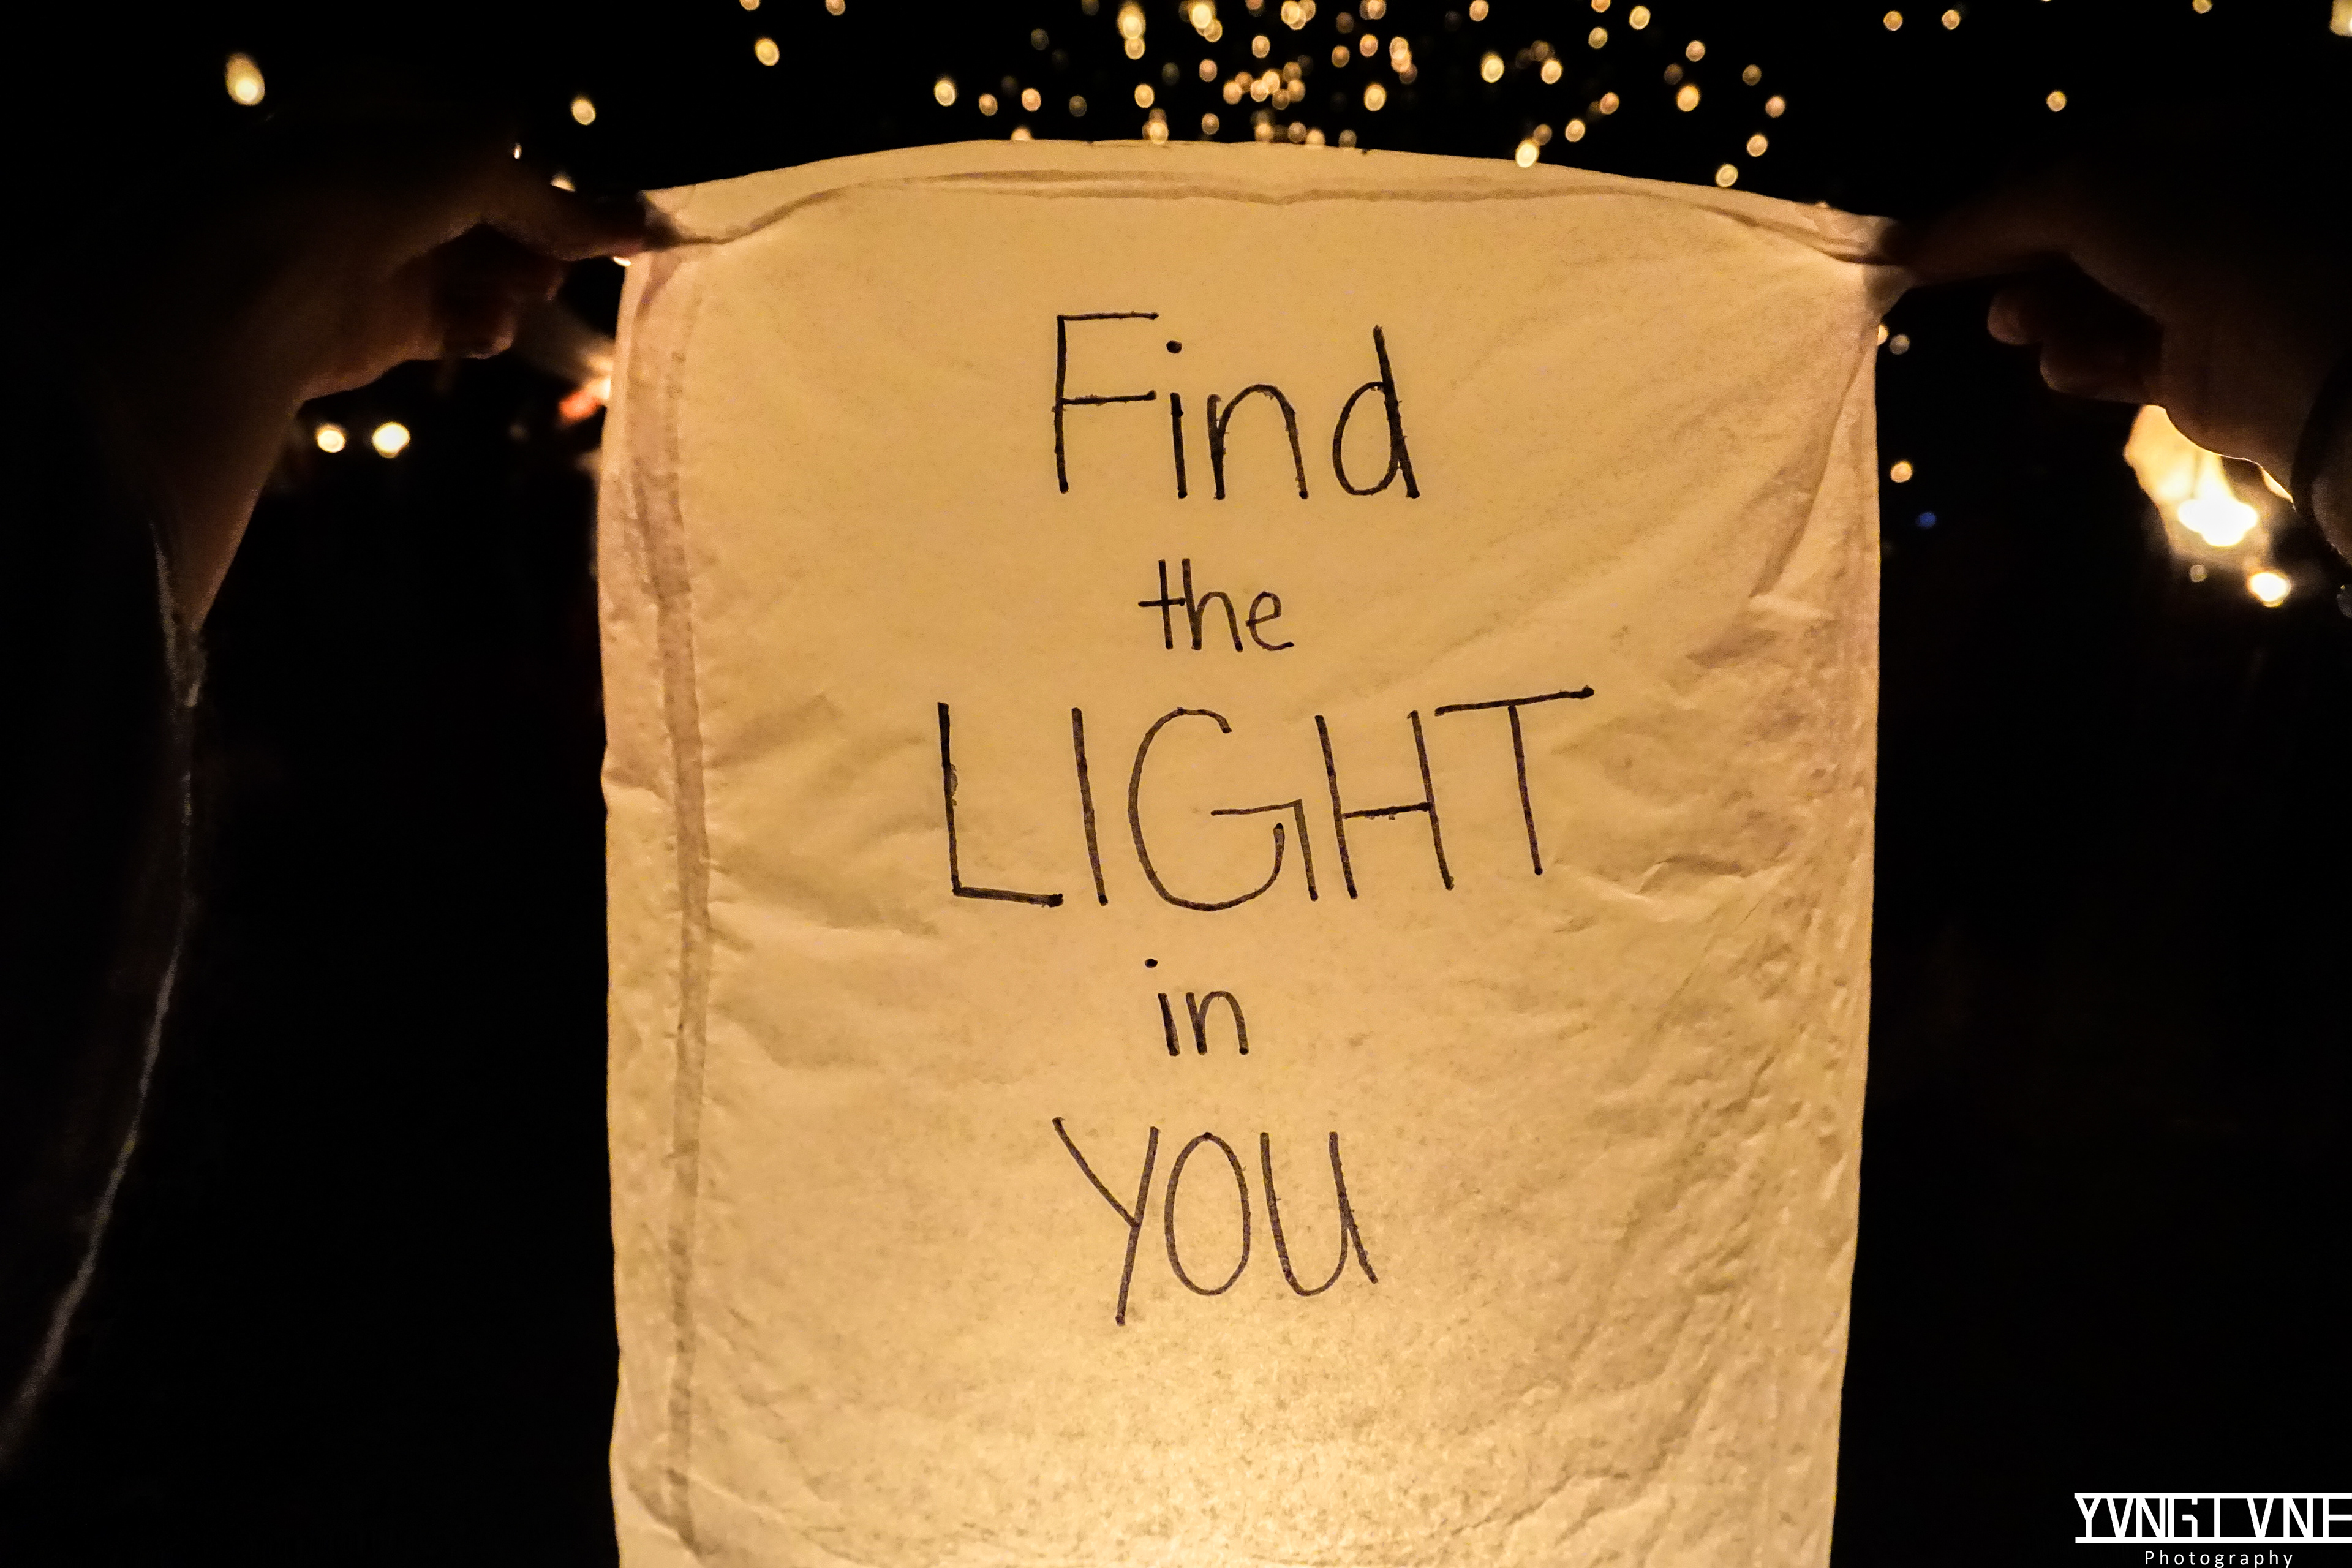 Find
the
LIGHT
in
YOU
Photography